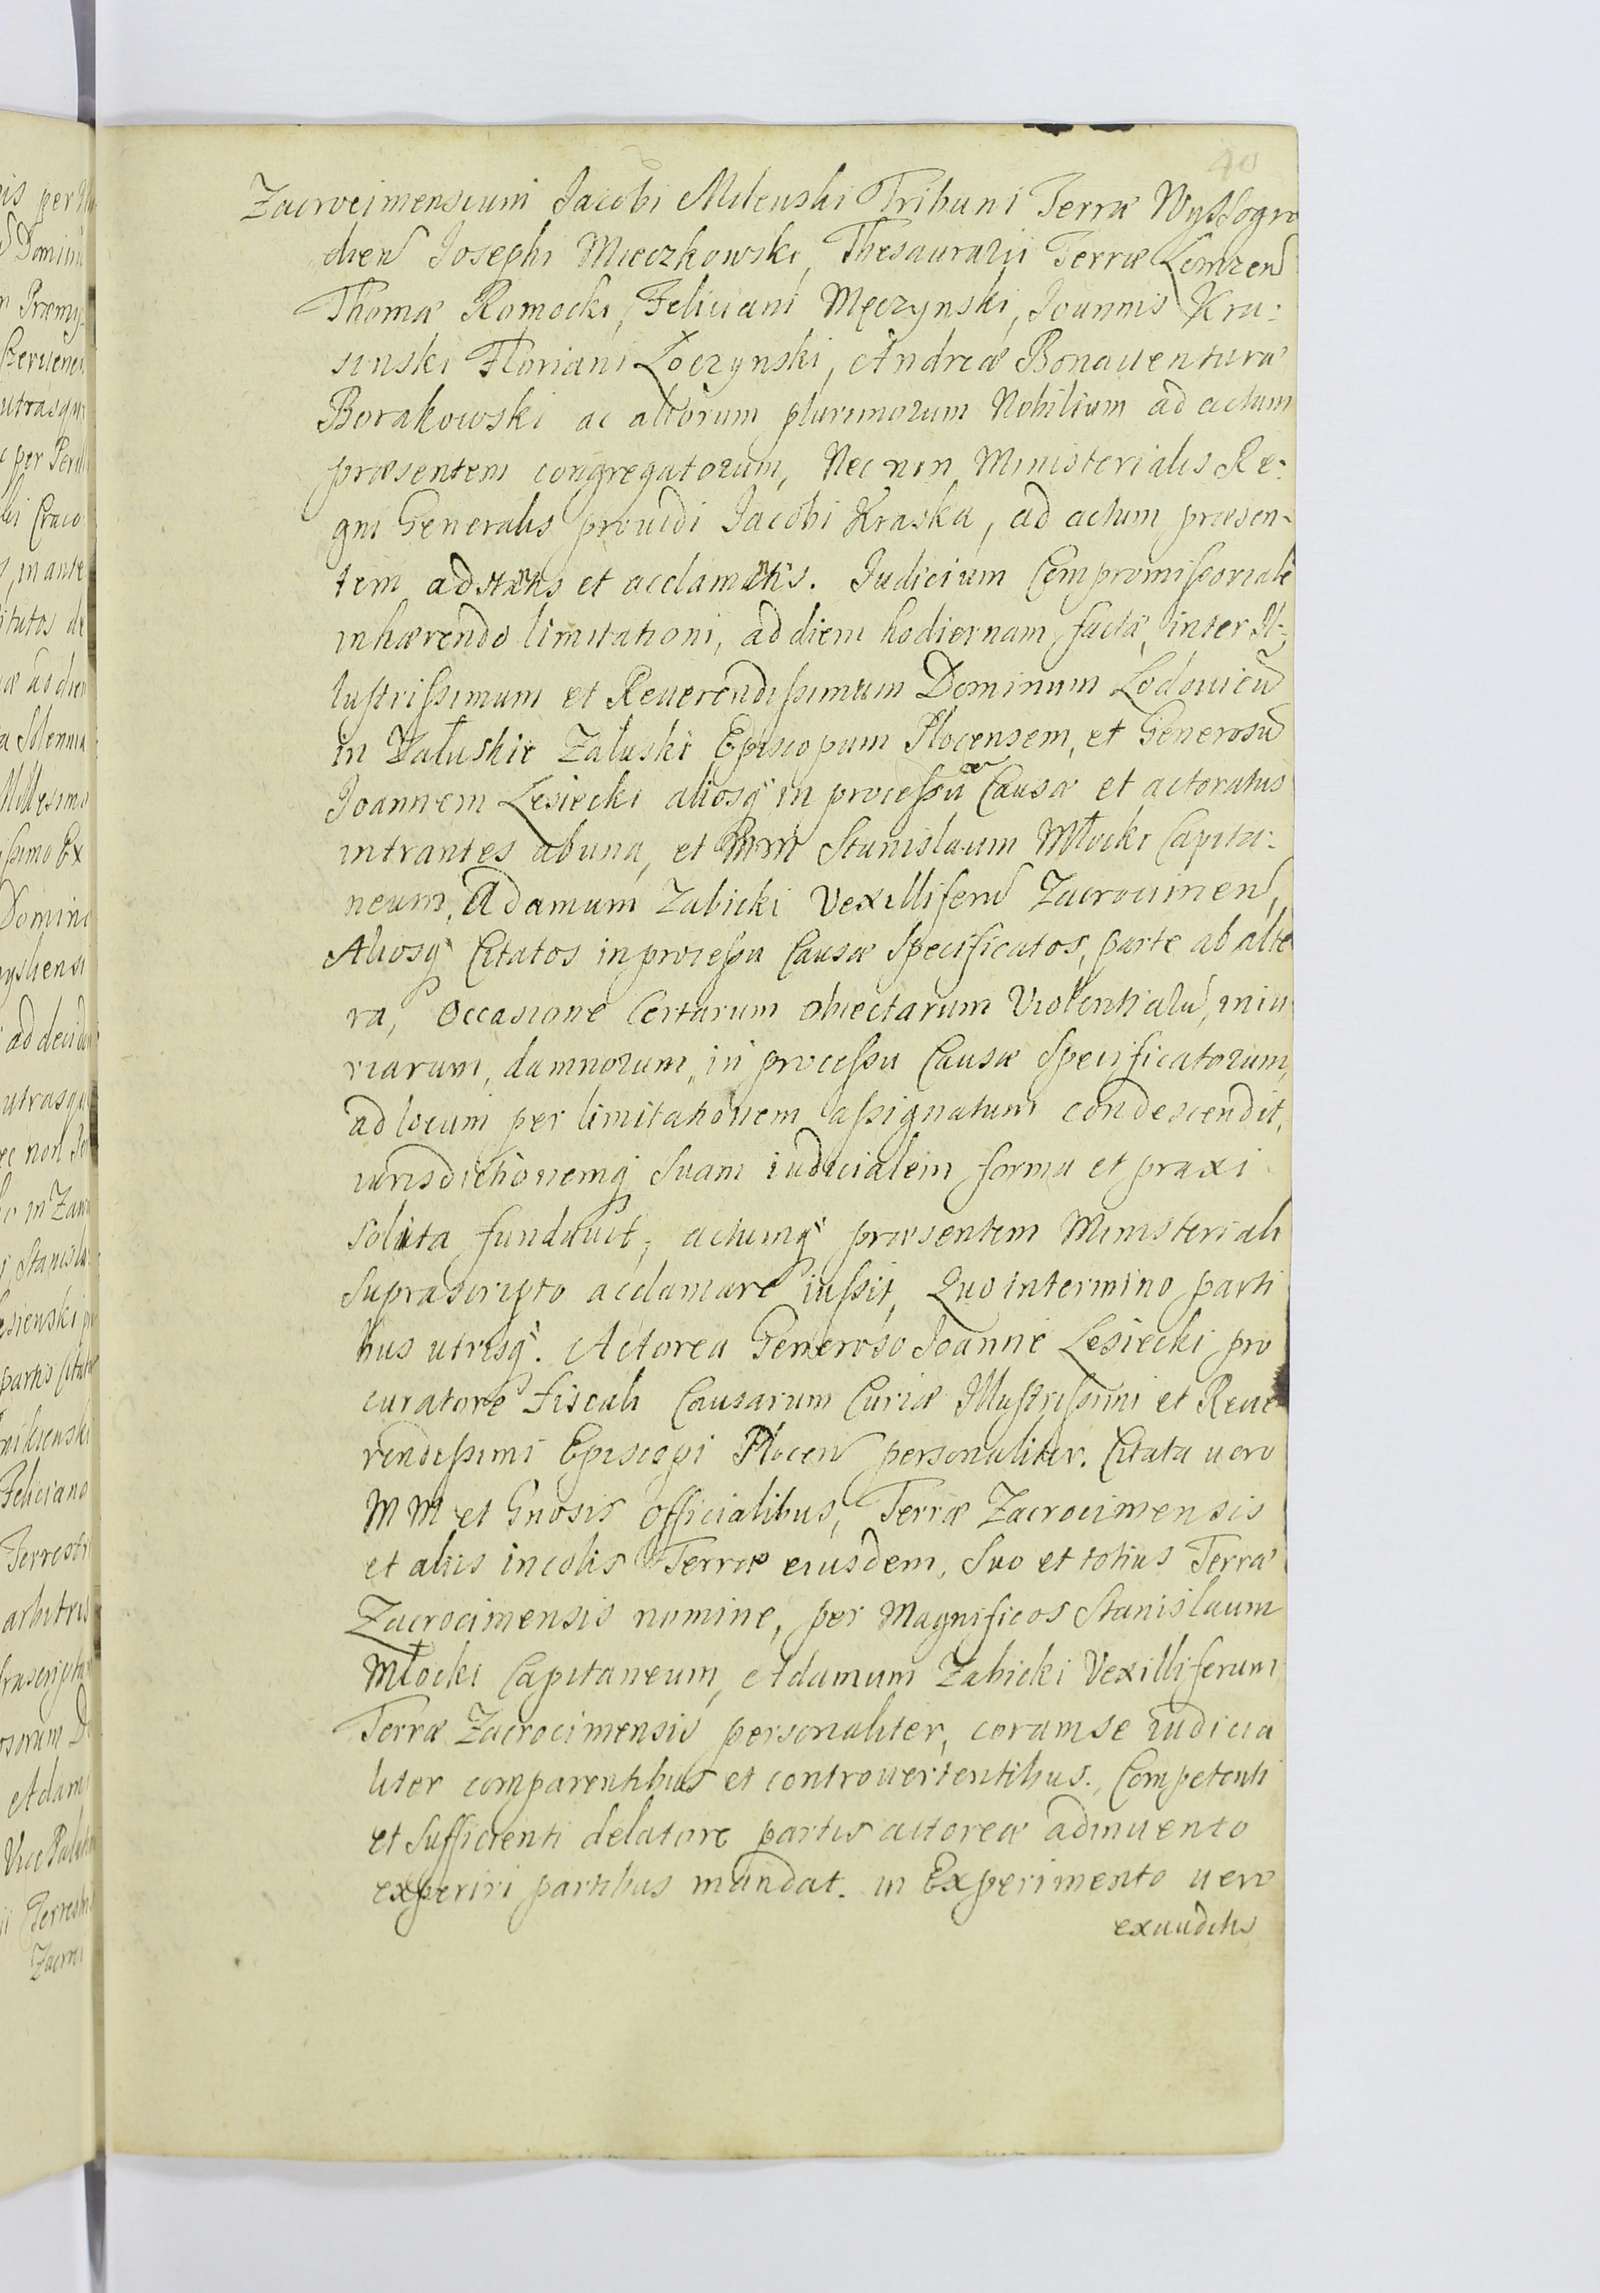 40
Zacrocimensium Jacobi Milewski Tribuni Terræ Wyssogro
dień Josephi Mieczkowski, Thesaurarii Terræ Łomzeń
Thomæ Romocki, Feliciani Męczynski, Joannis Kra:
sinski Floriani Łoczynski, Andreæ Bonauenturæ
Borakowski ac aliorum plurimorum Nobilium ad actum
præsentem congregatorum, Nec non Ministerialis Re:
gni Generalis prouidi Jacobi Kraska, ad actum præsen-
tem adstantis et acclamantis. Judicium Compromissoriale
inhærendo limitationi, ad diem hodiernam factæ, inter Il:
lustrissimum et Reuerendissimum Dominum Lodouicū
in Załuskie Załuski Episcopum Plocensem, et Generosū
Joannem Lesiecki aliosq́ in processu Causæ et actoratus
intrantes ab una, et MM Stanislaum Młocki Capita:
neum, Adamum Zabicki Vexilliferū Zacrocimeń,
Aliosq́ Citatos in processu Causæ specificatos, parte ab alte
ra, Occasione Certarum obiectarum Violentiarū, iniu
riarum, damnorum, in processu Causæ specificatorum,
ad locum per limitationem assignatum condescendit,
iurisdictionemq́ suam iudicialem forma et praxi
solita fundauit, actumq́ præsentem Ministeriali
suprascripto acclamare iussit, Quo in termino parti
bus utrisq́. Actorea Generoso Joanne Lesiecki pro
curatore fiscali Causarum Curiæ Illustrissimi et Reue
rendissimi Episcopi Płoceń personaliter. Citata uero
MM et Gnosis Officialibus, Terræ Zacrocimensis
et aliis incolis Terræ eiusdem, suo et totius Terræ
Zacrocimensis nomine, per Magnificos Stanislaum
Młocki Capitaneum, Adamum Zabicki Vexilliferum
Terræ Zacrocimensis personaliter, coram se iudicia
liter comparentibus et controuertentibus., Competenti
et sufficienti delatore partis actoreæ adinuento
experiri partibus mandat. in Experimento uero
exauditis